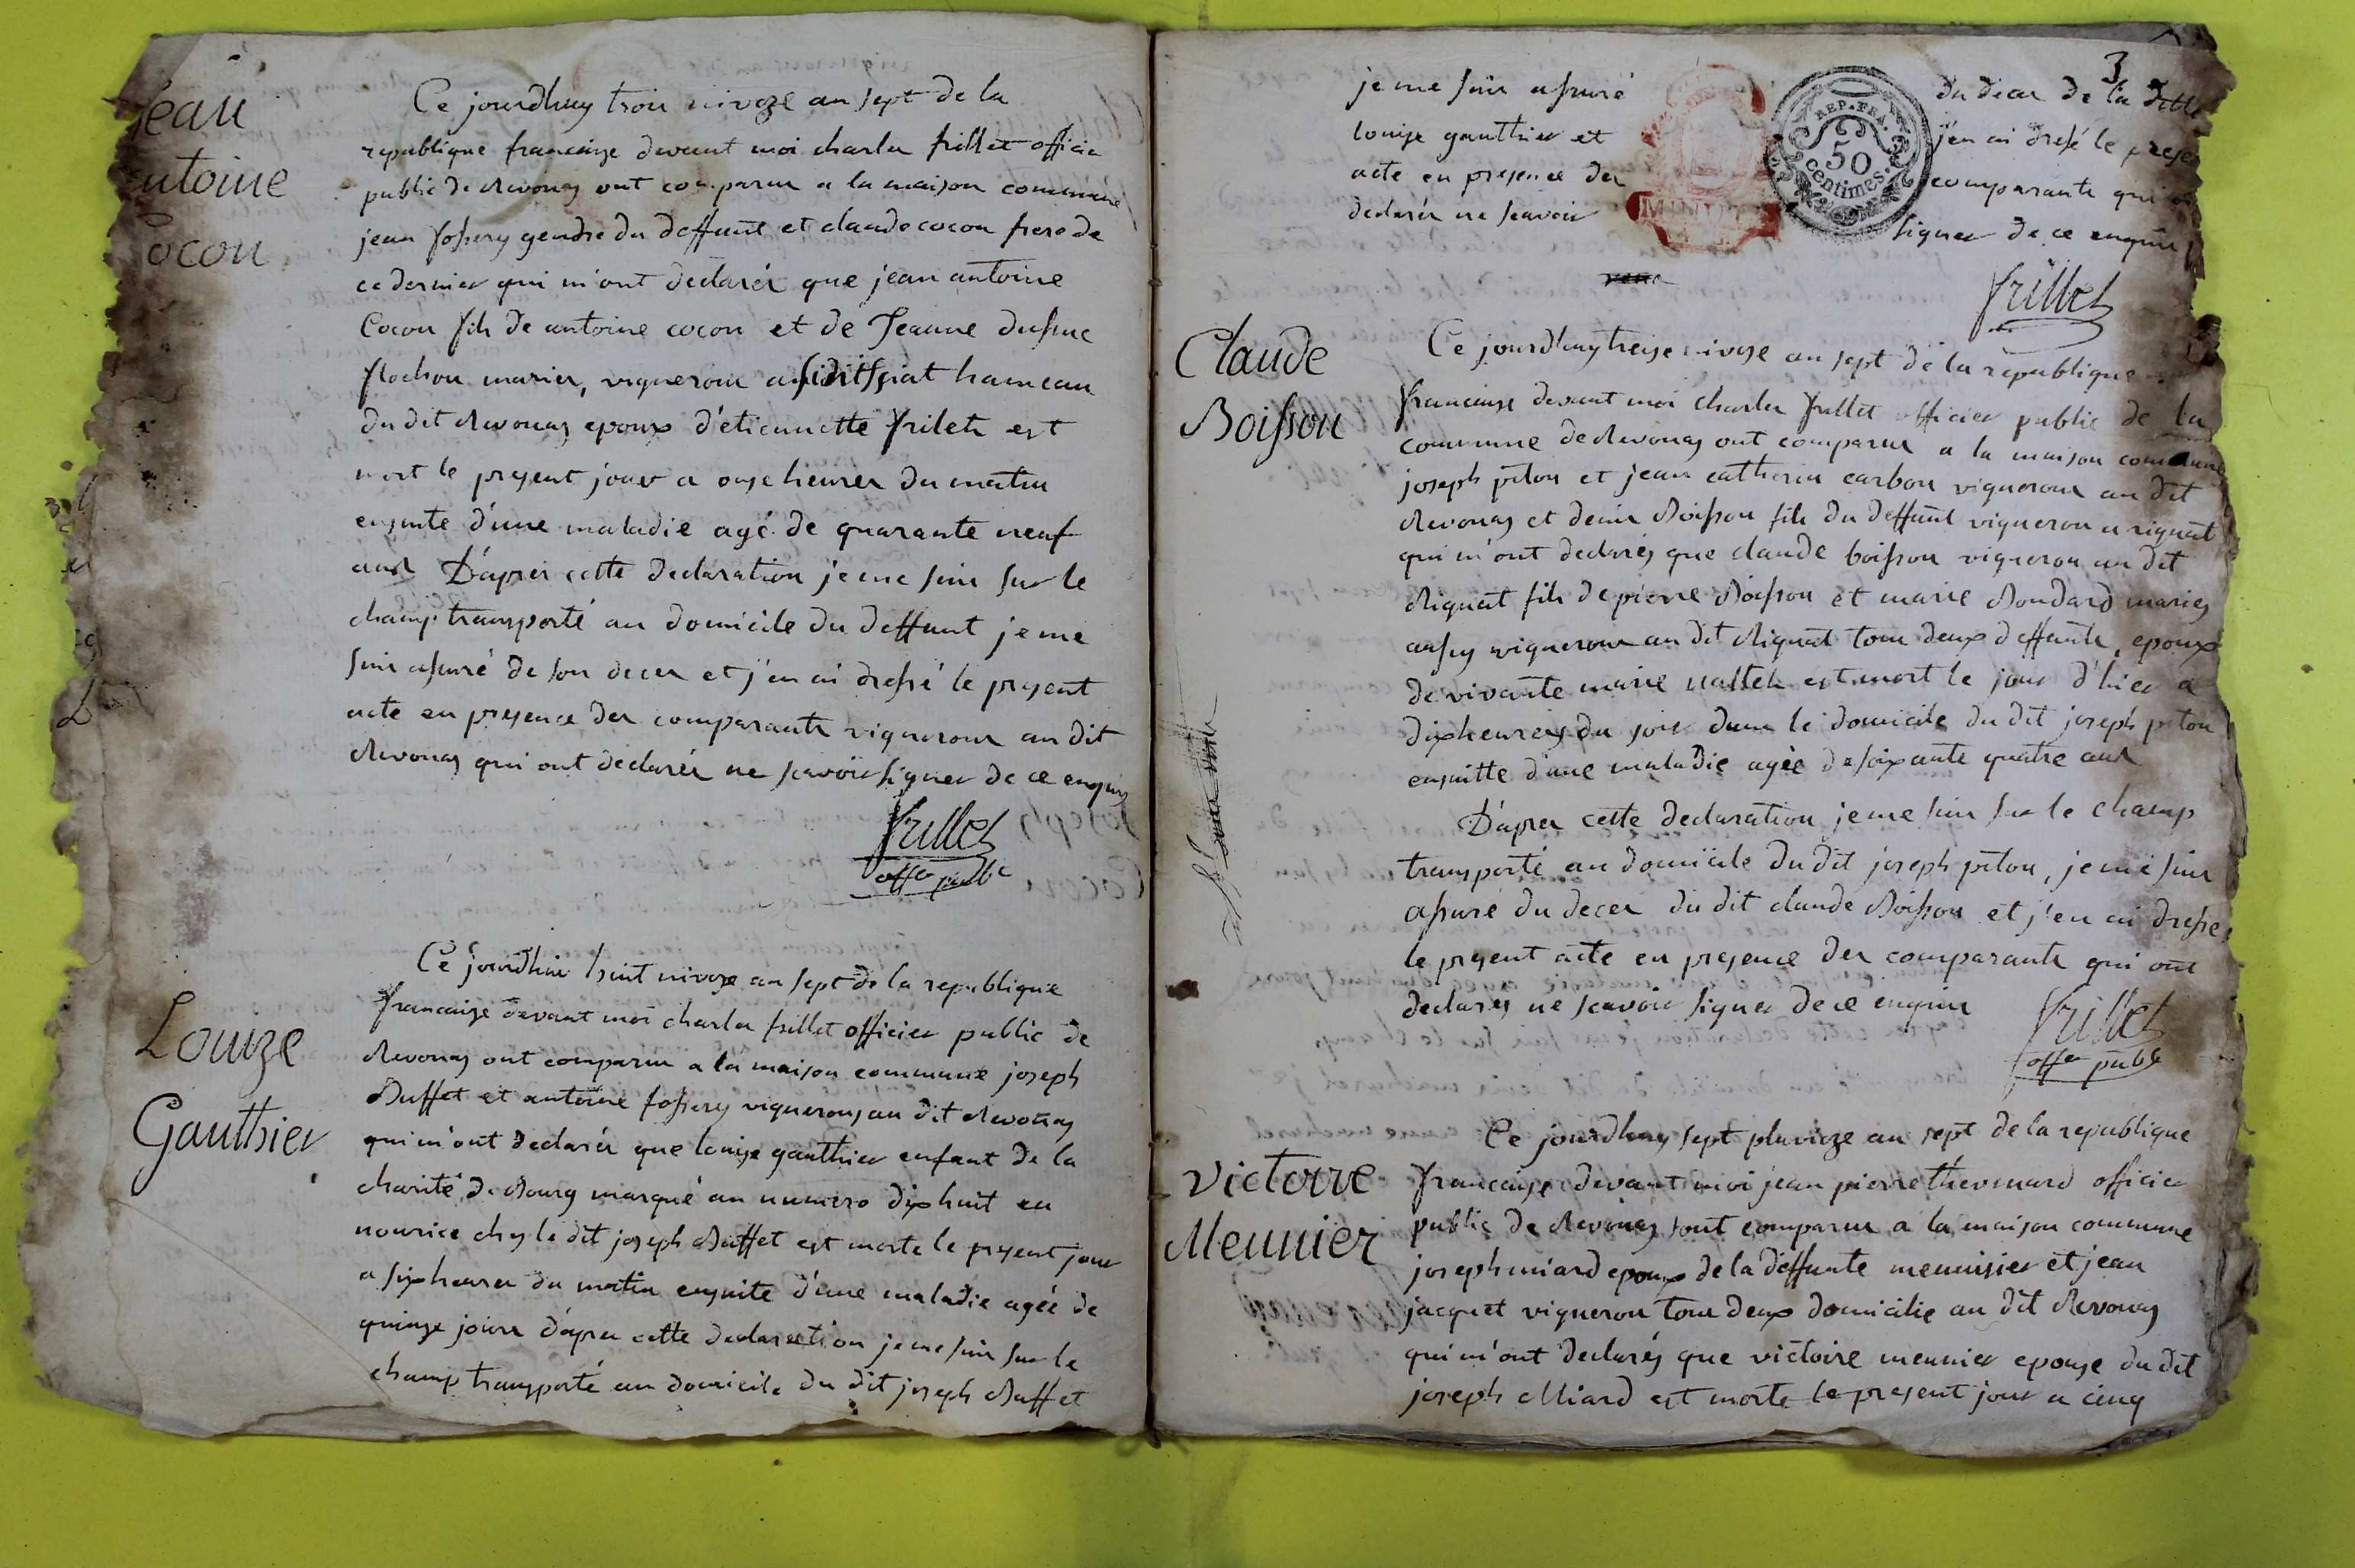 Jean
Antoine
Cocon
Ce jourdhuy trois nivoze an sept de la
republique francaize devant moi charles frillet officie
public de Revonas ont comparus a la maison commune
jean fossery gendre du deffunt et claude cocon frere de
ce dernier qui m'ont declarés que jean antoine
Cocon fils de antoine cocon et de Jeanne dusuc
flochon mariés, vignerons hameau
du dit Revonas epoux d'étiennette frilets est
mort le present jour a onze heures du matin
ensuite d'une maladie agé de quarante neuf
ans D'apres cette declaration je me suis sur le
champ transporté au domicile du deffunt je me
suis assuré de son deces et j'en ai dressé le present
acte en presence des comparants vignerons au dit
Revonas qui ont declarés ne scavoir signer de ce enquis
frillet
offer public
Louize
Gauthier
Ce jourdhui huit nivoze an sept de la republique
francaize devant moi charles frillet officier public de
Revonas ont comparus a la maison commune joseph
Buffet et antoine fossery vignerons au dit Revonas
qui m'ont declarés que louise gauthier enfant de la
charité de Bourg marqué au numero dix huit en
nourice chez le dit joseph Buffet est morte le present jour
a six heures du matin ensuite d'une maladie agée de
quinze jours d'apres cette declaration je me suis sur le
champ transporté au domicile du dit joseph Buffet
3
je me suis assuré du deces de la ditte
louise gauthier et j'en ai dressé le prese
acte en presence des comparants qui
declarés ne scavoir signer de ce enquis
REP. FRA.
50
centimes.
frillet
Claude
Boisson
Ce jourdhuy treize nivose an sept de la republique
francaise devant moi charles frillet officier public de la
commune de Revonas ont comparus a la maison commune
joseph piton et jean catherin carbon vignerons au dit
Revonas et denis Boisson fils du deffunt vigneron a rignat
qui m'ont declarés que claude boisson vigneron au dit
Rignat fils de pierre Boisson et marie Boudard mariés
aussy vignerons au dit Rignat tous deux deffunts, epoux
de vivante marie est mort le jour d'hier a
dix heures du soir dans le domicile du dit joseph piton
ensuitte d'une maladie agée de soixante quatre ans
D'apres cette declaration je me suis sur le champ
transporté au domicile du dit joseph piton, je me suis
assuré du deces du dit claude Boisson et j'en ai dressé
le present acte en presence des comparants qui ont
declarés ne scavoir signer de ce enquis
frillet
offer publ
Victoire
Meunier
Ce jourdhuy sept pluvioze an sept de la republique
francaise devant moi jean pierre thevenard officier
public de Revonas sont comparus a la maison commune
joseph miard epoux de la deffunte menuisier et jean
jacquet vigneron tous deux domicilié au dit Revonas
qui m'ont declarés que victoire meunier epouse du dit
joseph Miard est morte le present jour a cinq